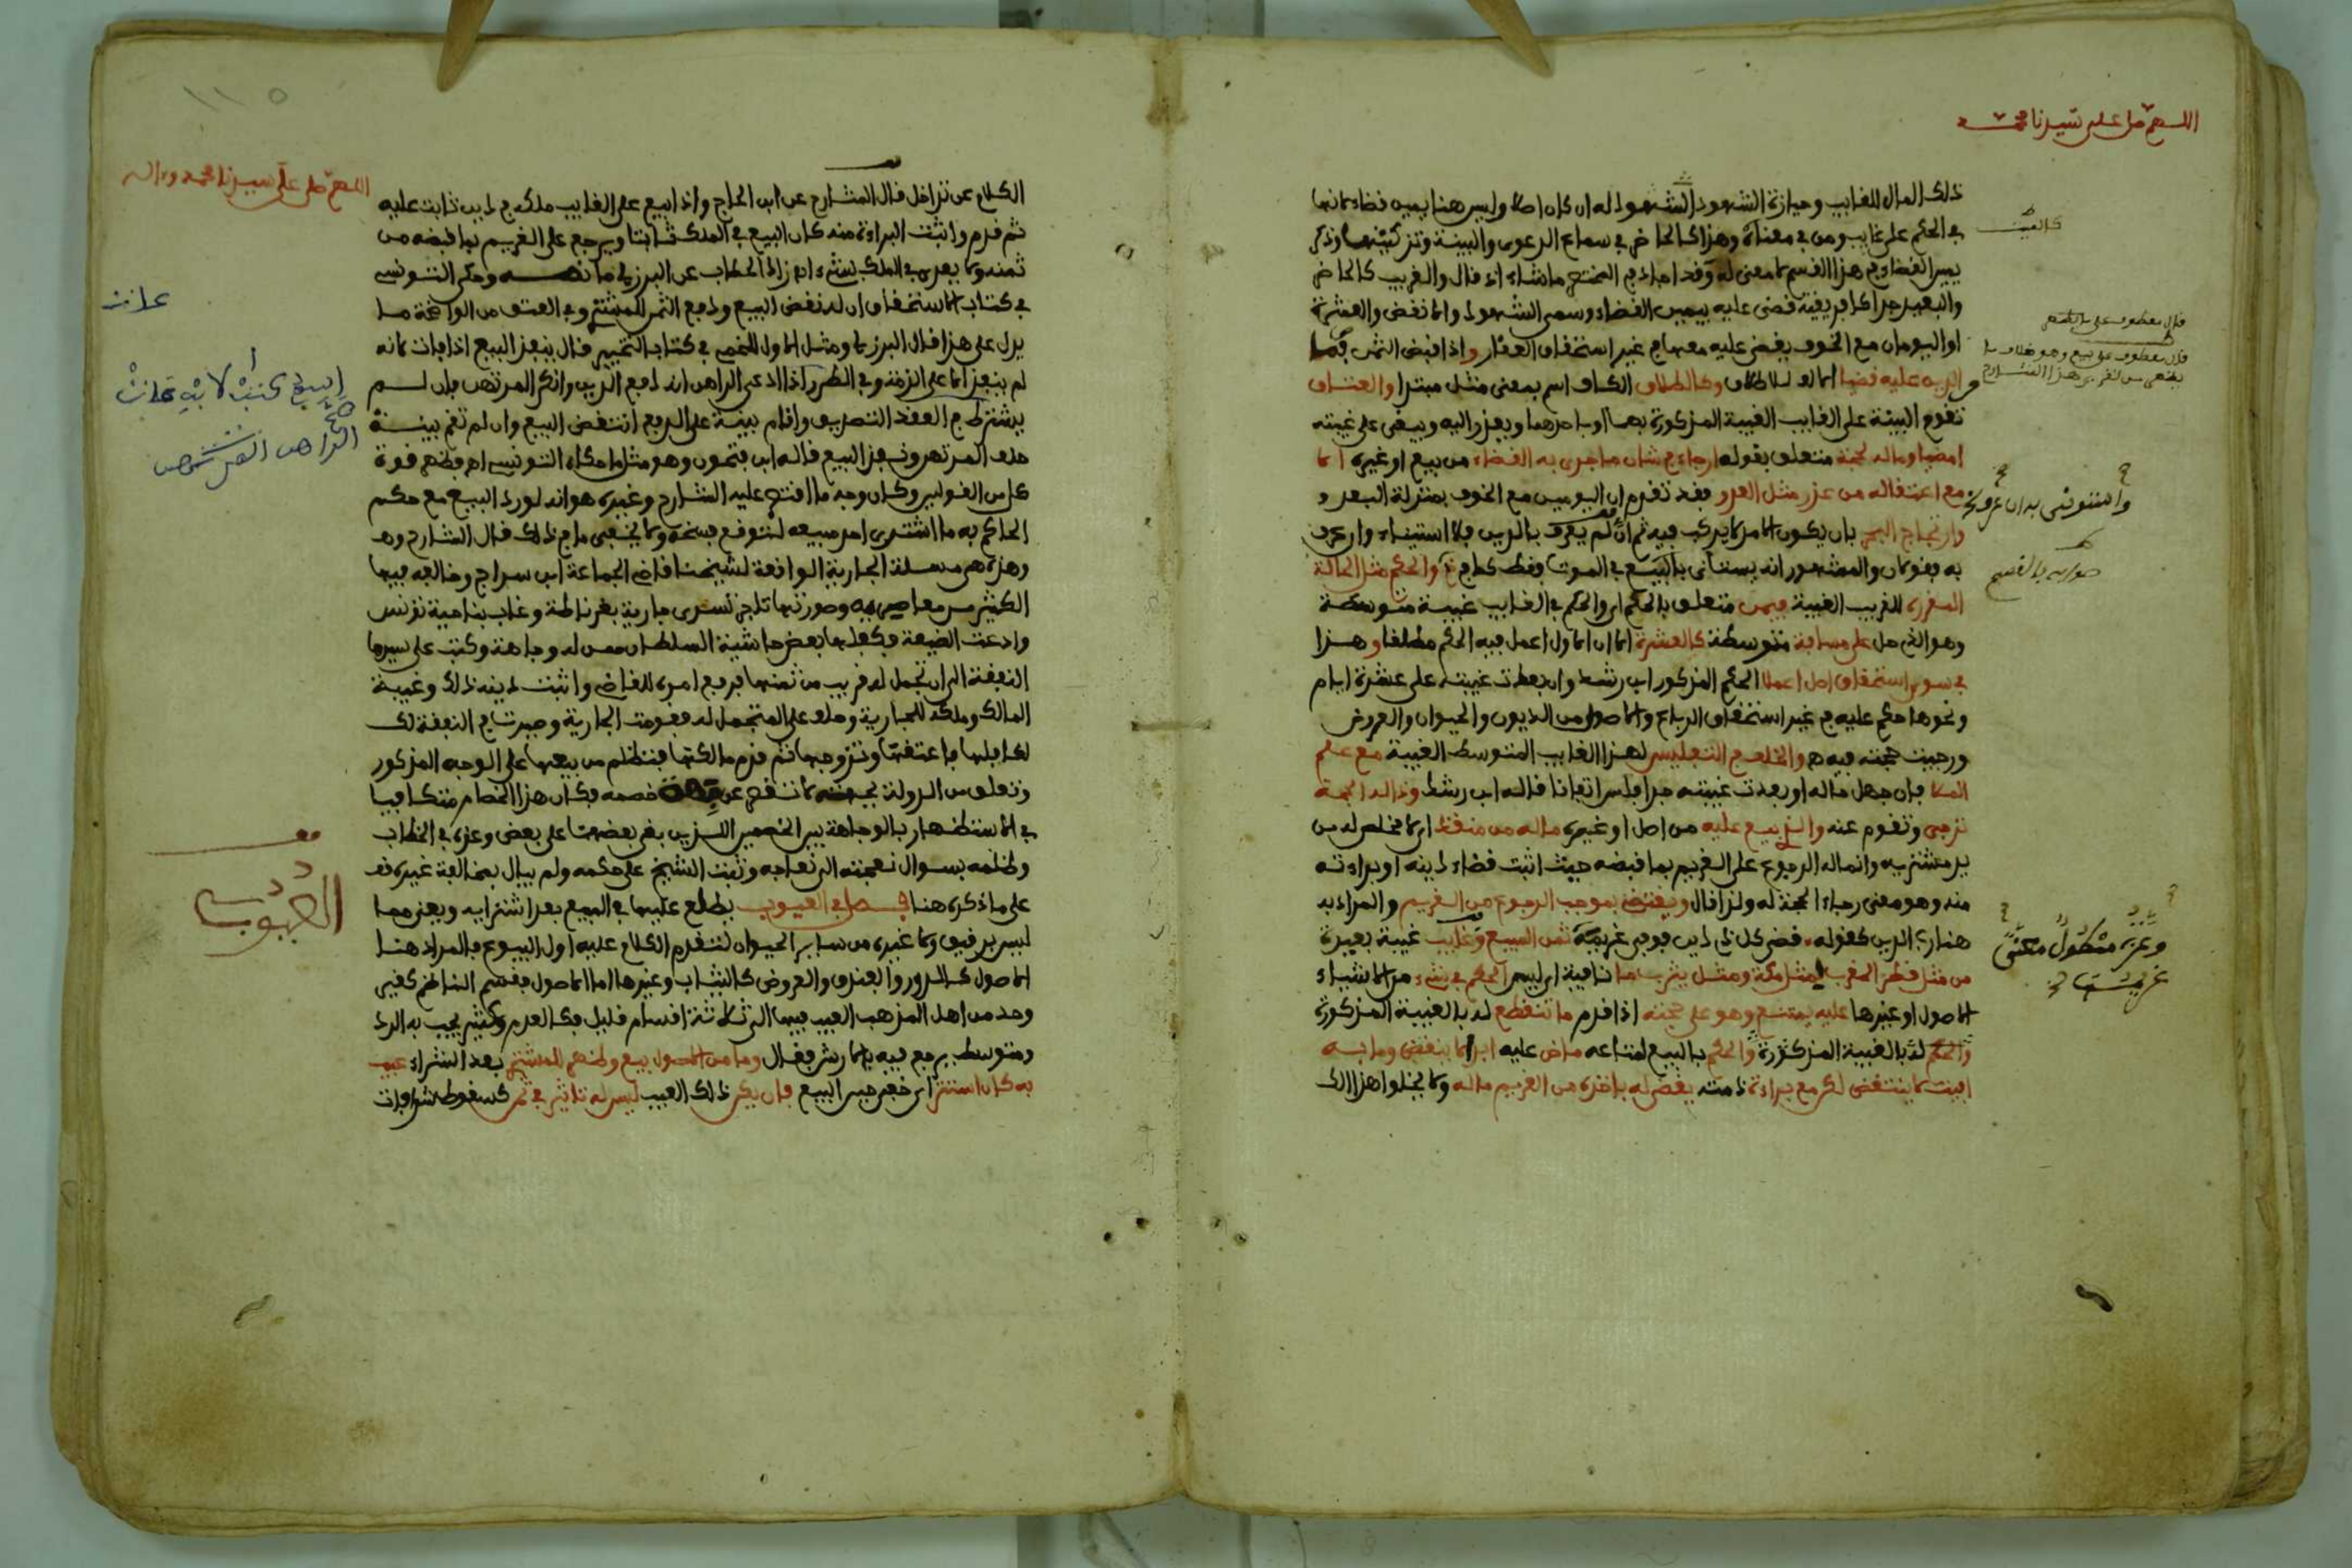 اللهم صل على سيدنا محمد
ذلك المال للغايب وحيازة الشهود المشهود له ان كان اصلا وليس هنا يمين قضاء لانها
في الحكم على غايب ومن في معناه وهذا كالحاضر في سماع الدعوى والبينة وتزكيتها وذكر
يمين القضاء في هذا القسم لا معنى له وقد اجاد في المختصر ما شاء اذ قال والقريب كالحاضر
والبعيد جدا كافريقية قضى عليه بيمين القضاء وسمى الشهود والا نقض والعشرة
او اليومان مع الخوف يقضى عليه معها في غير استحقاق العقار واذا قبض الثمن
الدين عليه قضيا كالطلاق الكاف اسم بمعنى مثل مبتدا والعتاق
تقوم البينة على الغايب الغيبة المذكورة بهما او باحدهما ويعذر اليه ويبقى على غيبته
امضيا وماله لحجة متعلق بقوله ارجاء في شان ما جرى به القضاء من بيع او غيره الا
مع اعتقاله من عذر مثل العدو فقد تقدم ان اليومين مع الخوف بمنزلة البعد
وارتجاج البحر بان يكون الامر لا يركب فيه ثم ان لم يعرف بالدين فلا استيناء وان عرف
به فقولان والمشهور انه يستانى بالبيع في الموت فقط كما في والحكم مثل الحالة
المقررة للقريب الغيبة فيمن متعلق بالحكم اي والحكم في الغايب غيبة متوسطة
وهو الذي حل على مسافة متوسطة كالعشرة الا ان الاول اعمل فيه الحكم مطلقا وهذا
في سوى استحقاق اصل اعملا الحكم المذكور ابن رشد وان بعدت غيبته على عشرة ايام
ونحوها حكم عليه في غير استحقاق الرباع والاصول من الديون والحيوان والعروض
ورجيت حجته فيه والخلف في التفليس لهذا الغايب المتوسط الغيبة مع علم
الملا فان جهل حاله او بعدت غيبته جدا فلس اتفاقا قاله ابن رشد وذا له الحجة
ترجى وتقوم عنه والذي بيع عليه من اصل او غيره ماله من منقذ اي لا مخلص له من
يد مشتريه وانما له الرجوع على الغريم بما قبضه حيث اثبت قضاء دينه او براءته
منه وهو معنى رجاء الحجة له ولذا قال ويقتضي بموجب الرجوع من الغريم والمراد به
هنا رب الدين كقوله قضى كل ذي دين فوفى غريمه ثمن المبيع وغايب غيبة بعيدة
من مثل قطر المغرب لمثل مكة ومثل يثرب ما نافية اي ليس الحكم في شيء من الاشياء
الاصول او غيرها عليه يمتنع وهو على حجته اذا قدم ما تنقطع له بالغيبة المذكورة
والحكم له بالغيبة المذكورة والحكم بالبيع لمتاعه ماض عليه ابدا لا ينقض وما به
افيت لا ينتقض لكن مع براءة ذمته يقضى له باخذه من الغريم ماله ولا يخلوا هذا الك
صوابه بالقسم
وعزة ممطول معنى
غريمها
اللهم صل على سيدنا محمد وءاله
الكلام عن تداخل قال الشارح عن ابن الحاج واذا بيع على الغايب ملكه في دين ثابت عليه
ثم قدم واثبت البراءة منه كان البيع في الملك ثابتا ويرجع على الغريم بما قبضه من
ثمنه ولا يعدى في الملك بشيء زاد الحطاب عن البرزلي ما نصه وحكى التونسي
في كتاب الاستحقاق ان له نقض البيع ودفع الثمن للمشتري وفي العتق من الواضحة ما
يدل على هذا قال البرزلي ومثل الاول للخمي في كتاب التخيير قال ينفذ البيع اذا فات لانه
لم ينفذ الا على الذمة وفي الطرر اذا ادعى الراهن انه دفع الدين وانكر المرتهن فان لم
يشترط في العقد التصديق واقام بينة على الدفع انتقض البيع وان لم تقم بينة
حلف المرتهن ونفذ البيع قاله ابن فتحون وهو مثل ما حكاه التونسي
كل من القولين وكان وجه ما اقتصر عليه الشارح وغيره هو انه لو رد البيع مع حكم
الحاكم به ما اشترى احد مبيعه لتوقع فسخه ولا يخفى ما في ذلك قال الشارح
وهذه هي مسئلة الجارية الواقعة لشيخنا قاضي الجماعة ابن سراج وخالفه فيها
الكثير من معاصريه وصورتها تاجر تسرى جارية بغرناطة وغاب بناحية تونس
وادعت الضيعة فكفلها بعض حاشية السلطان ممن له وجاهة وكتب على سيدها
النفقة الى ان تجمل له قريب من ثمنها فرفع امره للقاضي واثبت دينه ذلك وغيبة
المالك وملكه للجارية وحلف على المتجمل له فقومت الجارية وصيرت في النفقة لك
لكافلها فاعتقها وتزوجها ثم قدم مالكها فتظلم من بيعها على الوجه المذكور
وتعلق من الدولة بجهة لا تنقص عن جهة خصمه فكان هذا الخصام متكافيا
في الاستظهار بالوجاهة بين الخصمين اللذين بغى بعضهما على بعض وعزه في الخطاب
وظلمه بسوال نعجته الى نعاجه وثبت الشيخ على حكمه ولم يبال بمخالفة غيره
على ما ذكره هنا فصل في العيوب يطلع عليها في المبيع بعد اشترايه ويعنى مما
ليس برقيق ولا غيره من ساير الحيوان لتقدم الكلام عليه اول البيوع فالمراد هنا
الاصول كالدور والفندق والعروض كالثياب وغيرها اما الاصول فقسم الناظم كغير
وحد من اهل المذهب العيب فيها الى ثلاثة اقسام قليل فكالعدم وكثير يجب به الرد
ومتوسط يرجع فيه بالارش فقال وما من الاصول بيع وظهر للمشتري بعد الشراء عيب
به كان استتر اي خفي حين البيع فان يكن ذلك العيب ليس له تاثير في ثمن كسقوط شرافات
العيوب